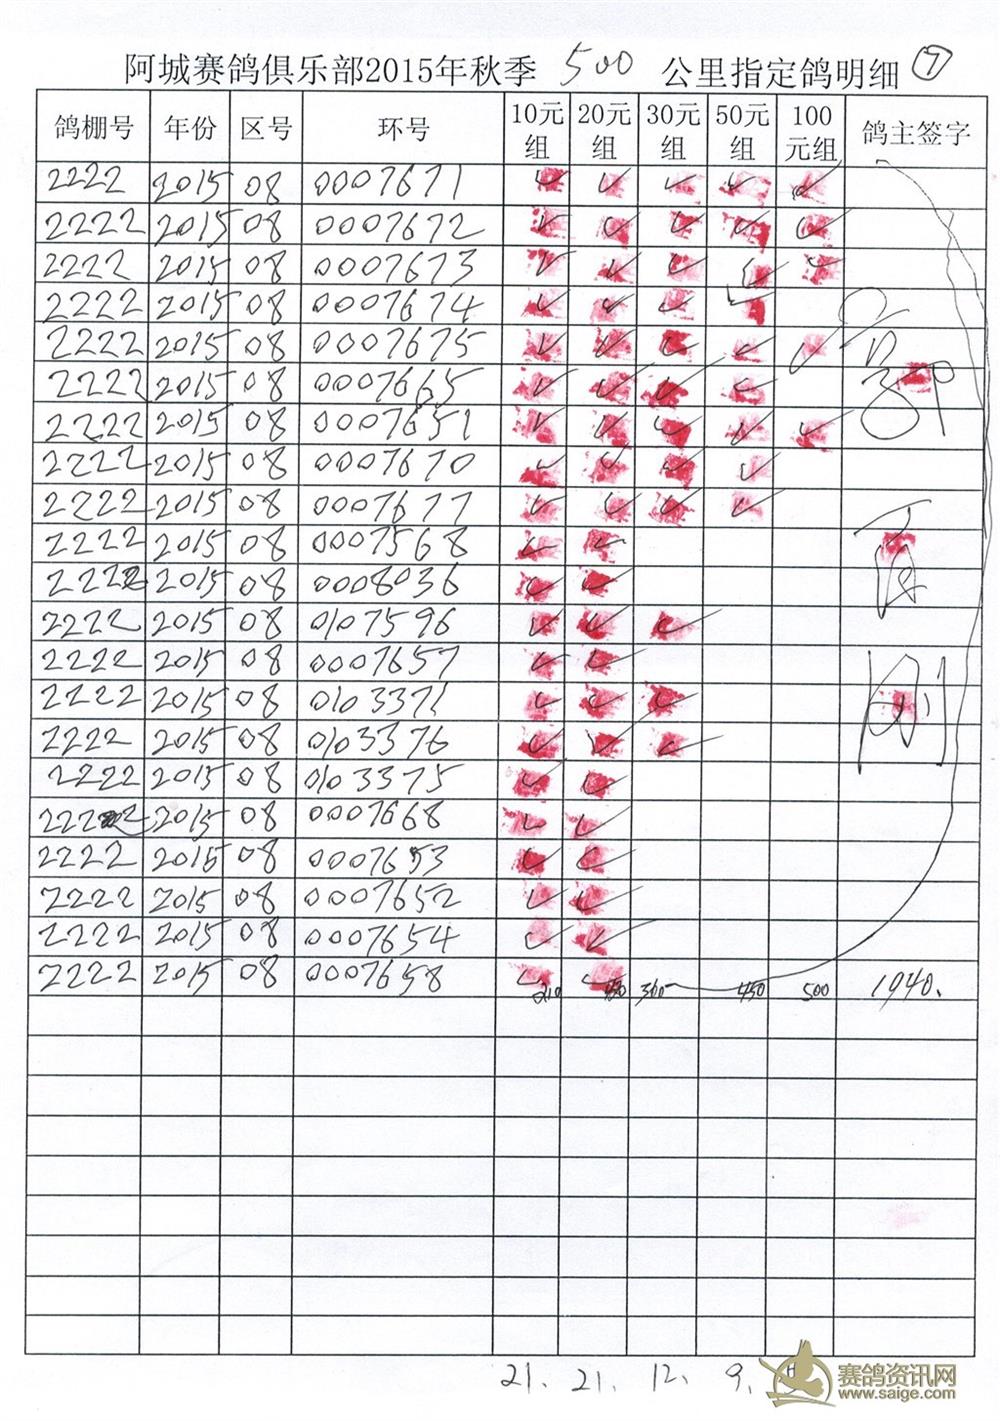 阿城赛鸽俱乐部2015年秋季 500 公里指定鸽明细 ⑦
鸽棚号 年份 区号 环号 10元组 20元组 30元组 50元组 100元组 鸽主签字
2222 2015 08 0007671 ✓ ✓ ✓ ✓ ✓
2222 2015 08 0007672 ✓ ✓ ✓ ✓ ✓
2222 2015 08 0007673 ✓ ✓ ✓ ✓ ✓
2222 2015 08 0007674 ✓ ✓ ✓ ✓
2222 2015 08 0007675 ✓ ✓ ✓ ✓ ✓
2222 2015 08 0007665 ✓ ✓ ✓ ✓
2222 2015 08 0007651 ✓ ✓ ✓ ✓ ✓
2222 2015 08 0007670 ✓ ✓ ✓ ✓
2222 2015 08 0007677 ✓ ✓ ✓ ✓
2222 2015 08 0007568 ✓ ✓
2222 2015 08 0008036 ✓ ✓
2222 2015 08 0107596 ✓ ✓ ✓
2222 2015 08 0007657 ✓ ✓
2222 2015 08 0103371 ✓ ✓ ✓
2222 2015 08 0103376 ✓ ✓ ✓
2222 2015 08 0103375 ✓ ✓
2222 2015 08 0007668 ✓ ✓
2222 2015 08 0007653 ✓ ✓
2222 2015 08 0007652 ✓ ✓
2222 2015 08 0007654 ✓ ✓
2222 2015 08 0007658 ✓ ✓
210 360 450 500 1940.
21. 21. 12. 9.
赛鸽资讯网
www.saige.com